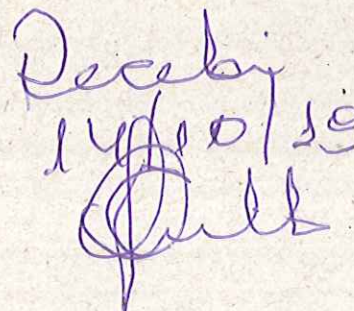 Recebi
14/10/19